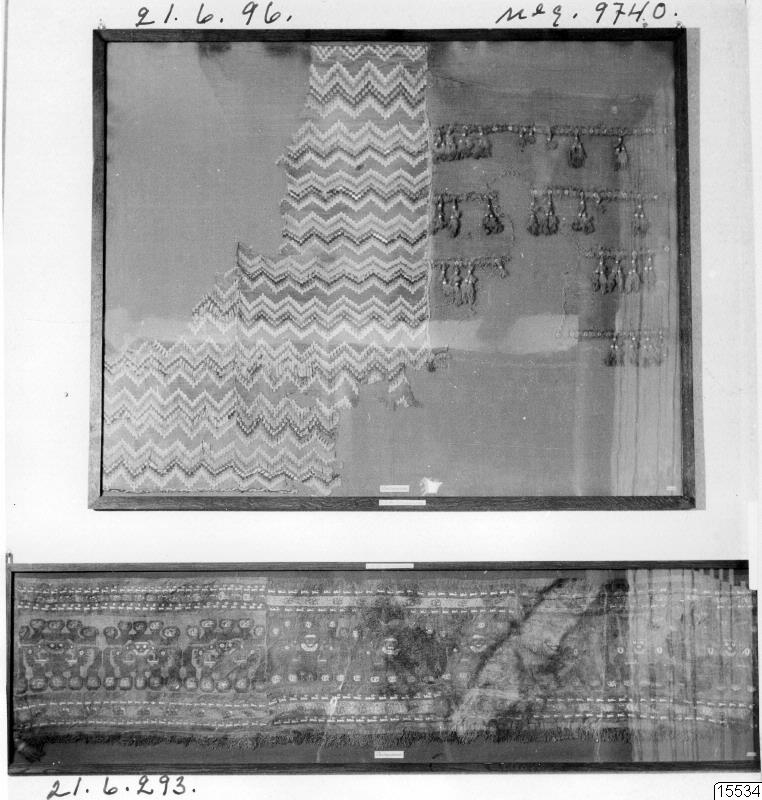 21.6.96.
neg. 9740.
21.6.293.
15534